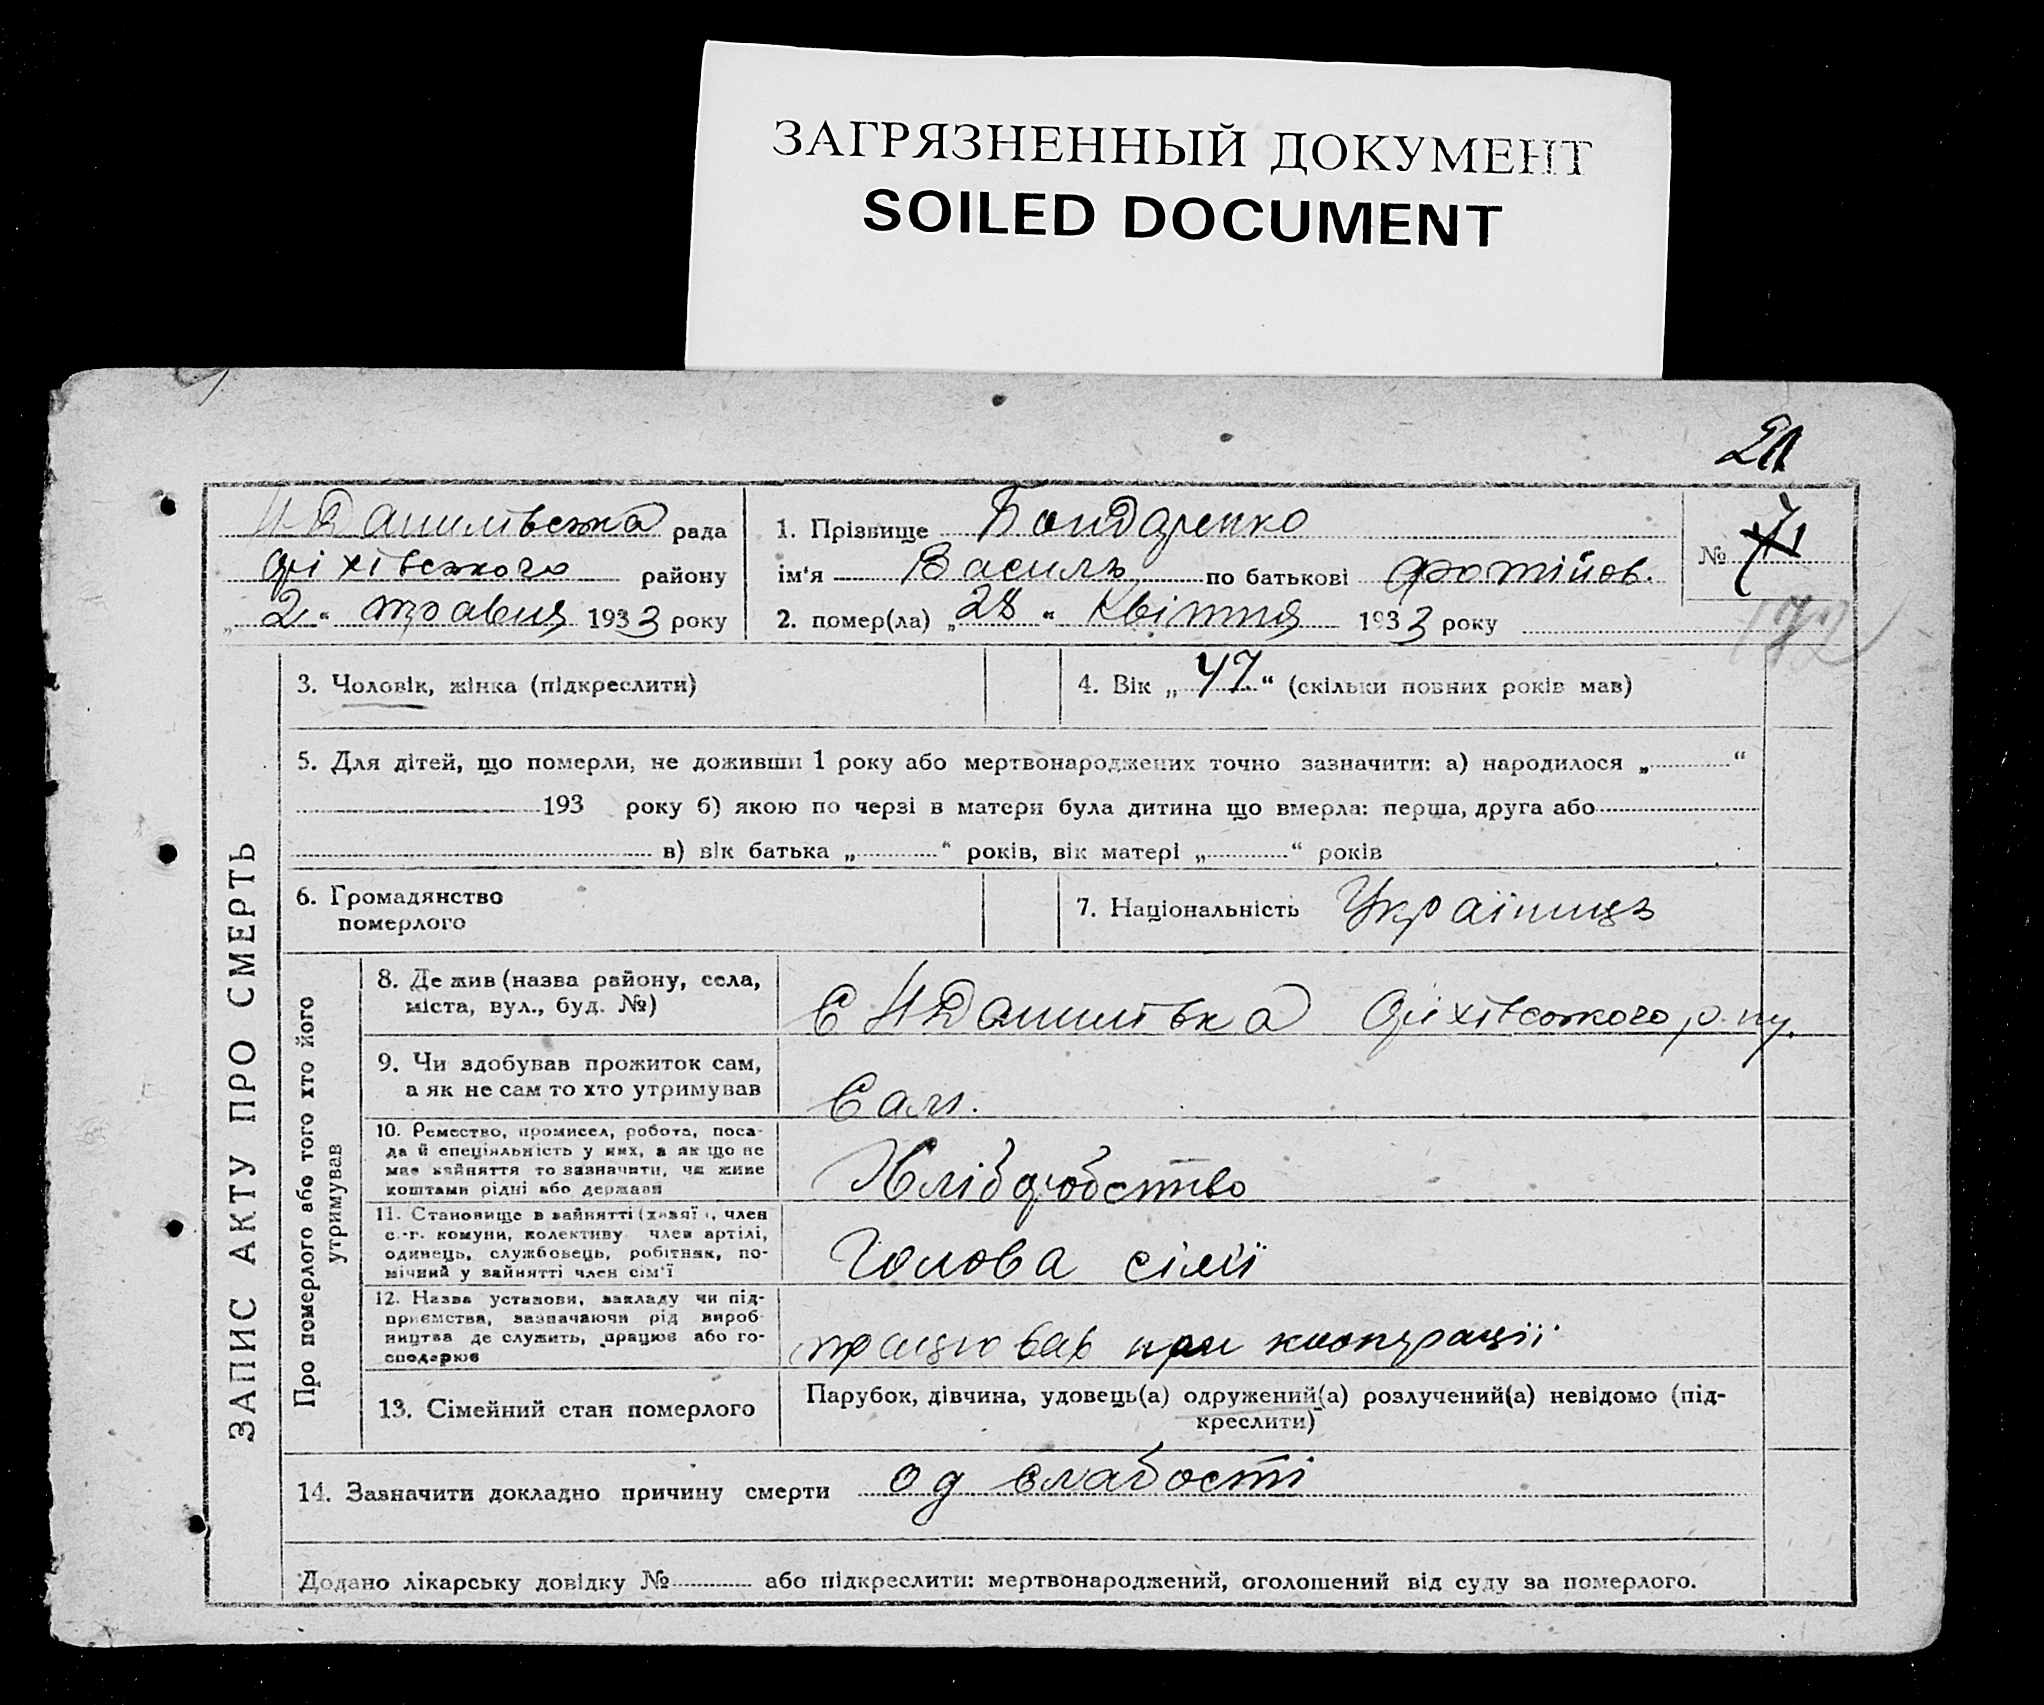 ЗАГРЯЗНЕННЫЙ ДОКУМЕНТ
SOILED DOCUMENT
Н Данилівська рада
Оріхівського району
„ 2 “ травня 1933 року
1. Прізвище Бондаренко
ім‘я Василь по батькові Фотійов.
2. помер(ла) „ 28 “ Квітня 1933 року
№
172
ЗАПИС АКТУ ПРО СМЕРТЬ
3. Чоловік, жінка (підкреслити)
4. Вік „ 47 “ (скільки повних років мав)
5. Для дітей, що померли, не доживши 1 року або мертвонароджених точно зазначити: а) народилося „ “
193 року б) якою по черзі в матери була дитина що вмерла: перша, друга або
в) вік батька „ “ років, вік матері „ “ років
6. Громадянство
померлого
7. Національність Українць
Про померлого або того хто його
утримував
8. Де жив (назва району, села,
міста, вул., буд. №)
С Н Данилівка Оріхівського р-ну.
9. Чи здобував прожиток сам,
а як не сам то хто утримував
Сам.
10. Ремество, промисел, робота, поса-
да й спеціяльність у них, а як що не
мав зайняття то зазначити, чи живе
коштами рідні або держави
Хлібробство
11. Становище в зайнятті (хазяї , член
с.-г. комуни, колективу член артілі,
одинець, службовець, робітник, по-
мічний у зайнятті член сім‘ї
Голова сімї
12. Назва установи, закладу чи під-
приємства, зазначаючи рід вироб-
ництва де служить, працює або го-
сподарює
працював при кооперації
13. Сімейний стан померлого
Парубок, дівчина, удовець(а) одружений(а) розлучений(а) невідомо (під-
креслити)
14. Зазначити докладно причину смерти од слабості
Додано лікарську довідку № або підкреслити: мертвонароджений, оголошений від суду за померлого.